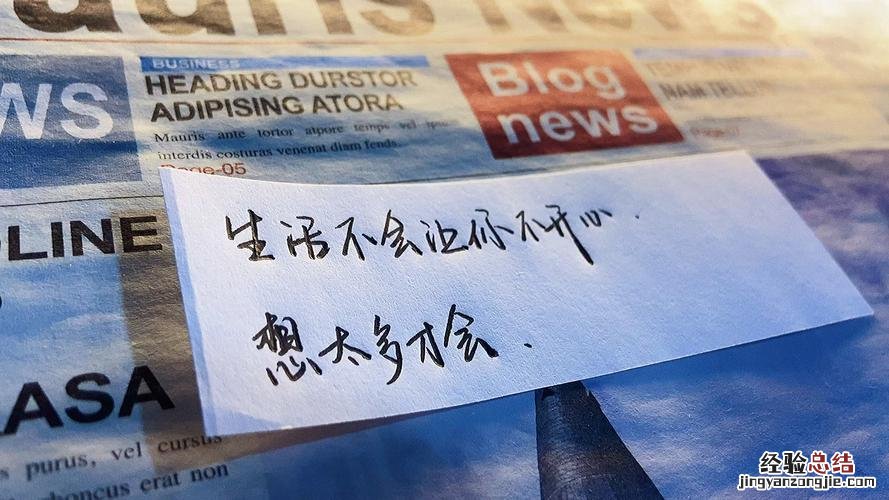 News
WS
BUSINESS
HEADING DURSTOR
ADIPISING ATORA
Mauris ante tortor atpore temps vel
interdis costuras venenat diam fends.
Page-05
Blog
news
NAM TELL
LINE
生活不会让你不开心.
想太多才会.
ASA
purus, vel cursus
rhoncus erat non
经验总结
jingyanzongjie.com